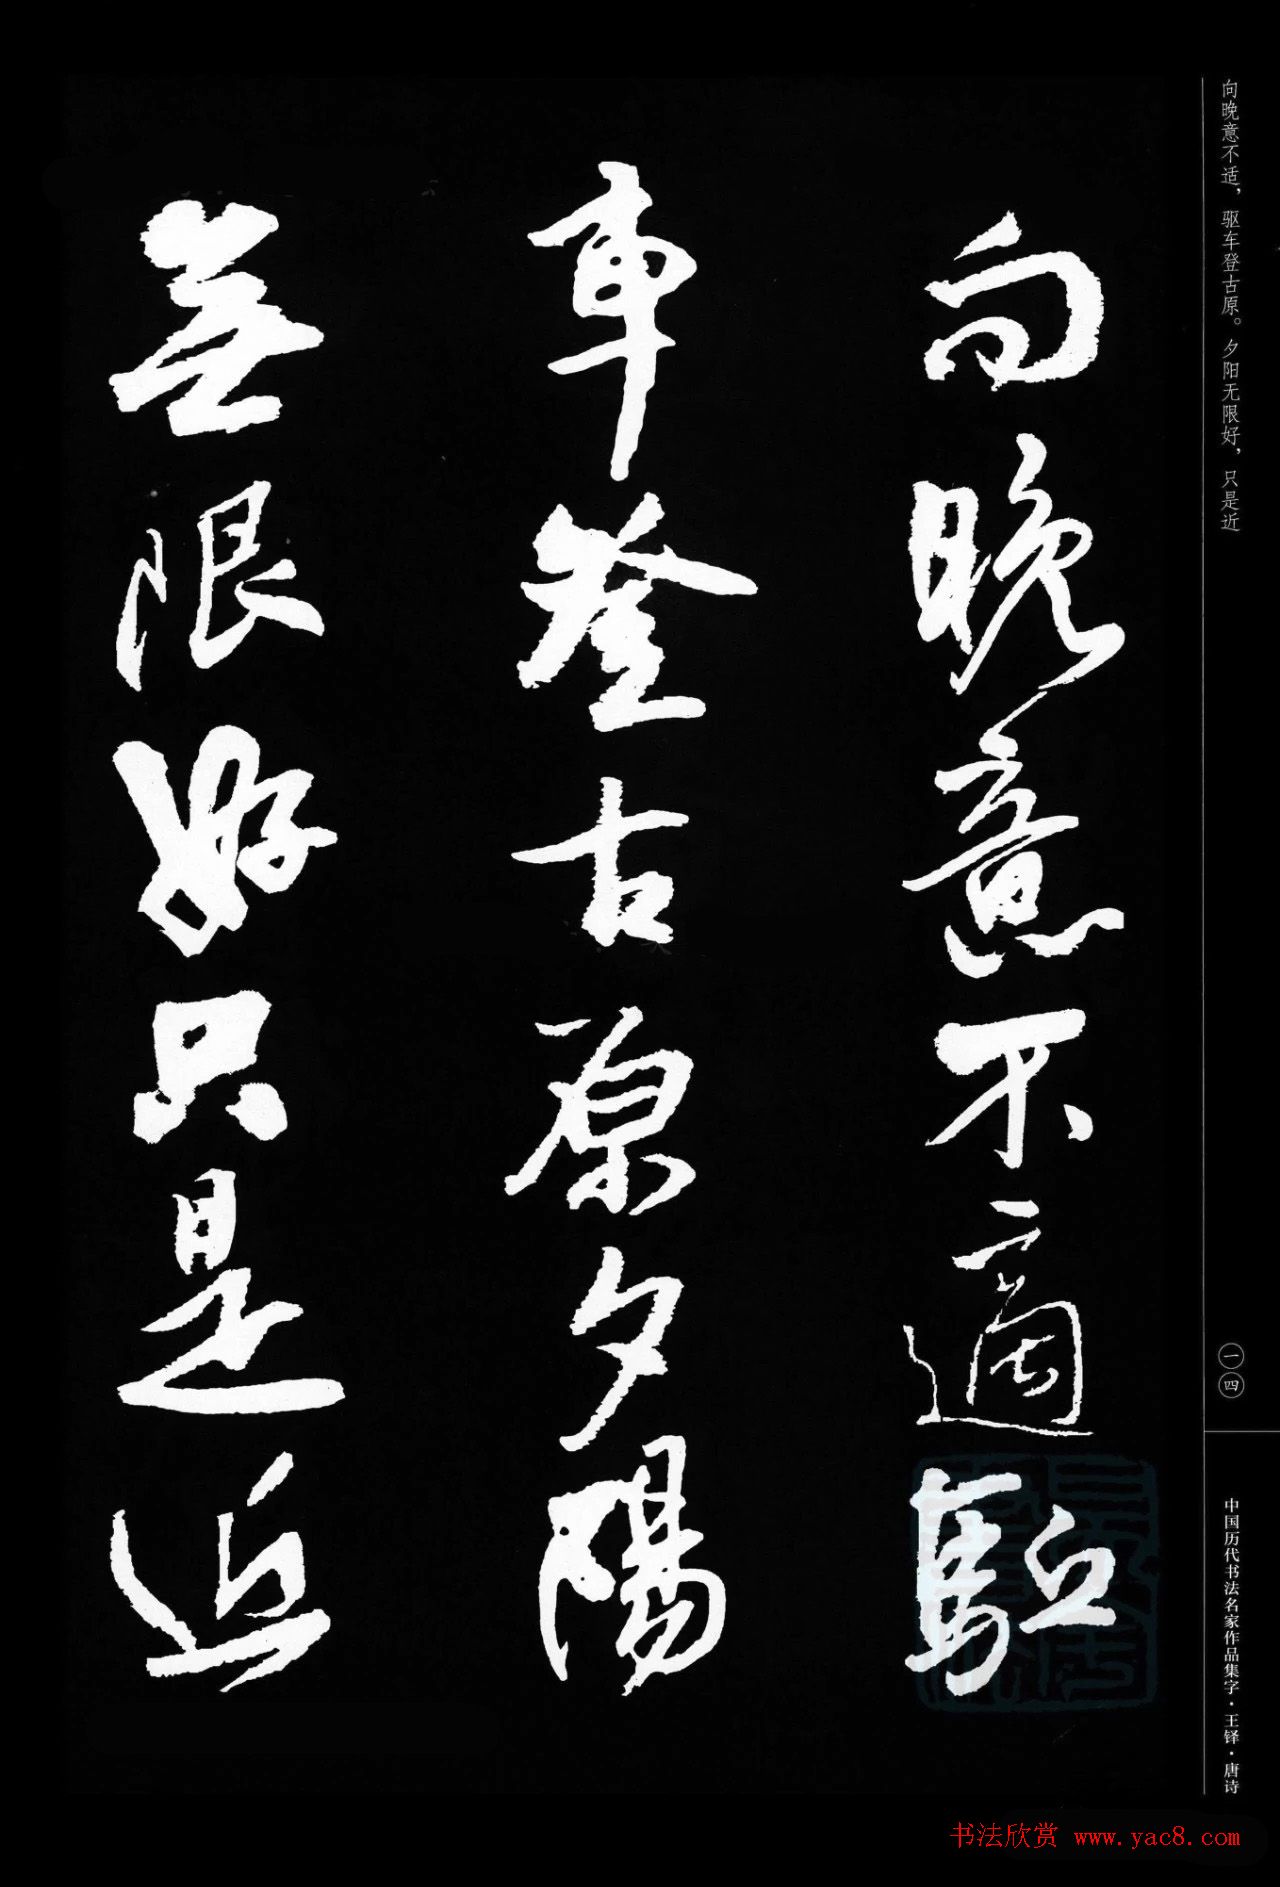 向晚意不适，驱车登古原。夕阳无限好，只是近
向晚意不適駈
車登古原夕陽
無限好只是近
一四
中国历代书法名家作品集字·王铎·唐诗
书法欣赏 www.yac8.com